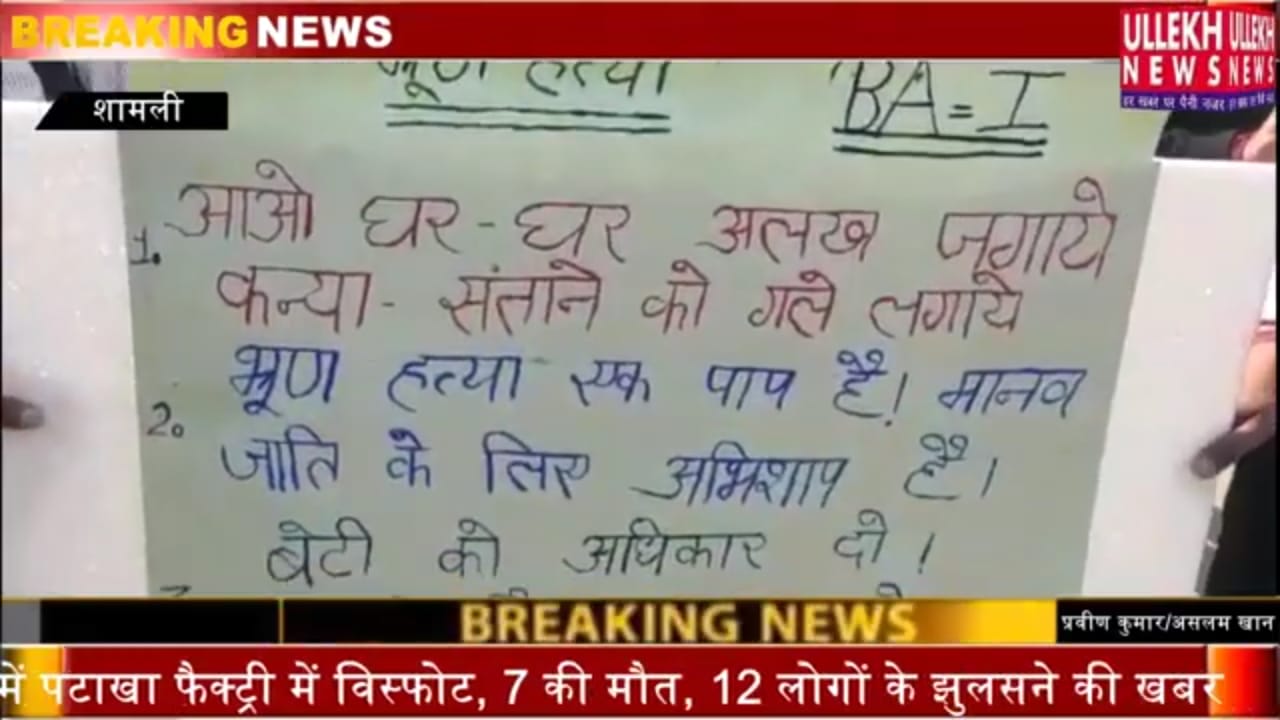 BREAKING NEWS
ULLEKH ULLEKH
NEWS NEWS
हर खबर पर पैनी नजर
शामली
भ्रूण हत्या
BA = I
1. आओ घर - घर अलख जगाये
कन्या - संताने को गले लगाये
2. भ्रूण हत्या एक पाप है। मानव
जाति के लिए अभिशाप है।
बेटी को अधिकार दो।
BREAKING NEWS
प्रवीण कुमार/असलम खान
में पटाखा फैक्ट्री में विस्फोट, 7 की मौत, 12 लोगों के झुलसने की खबर